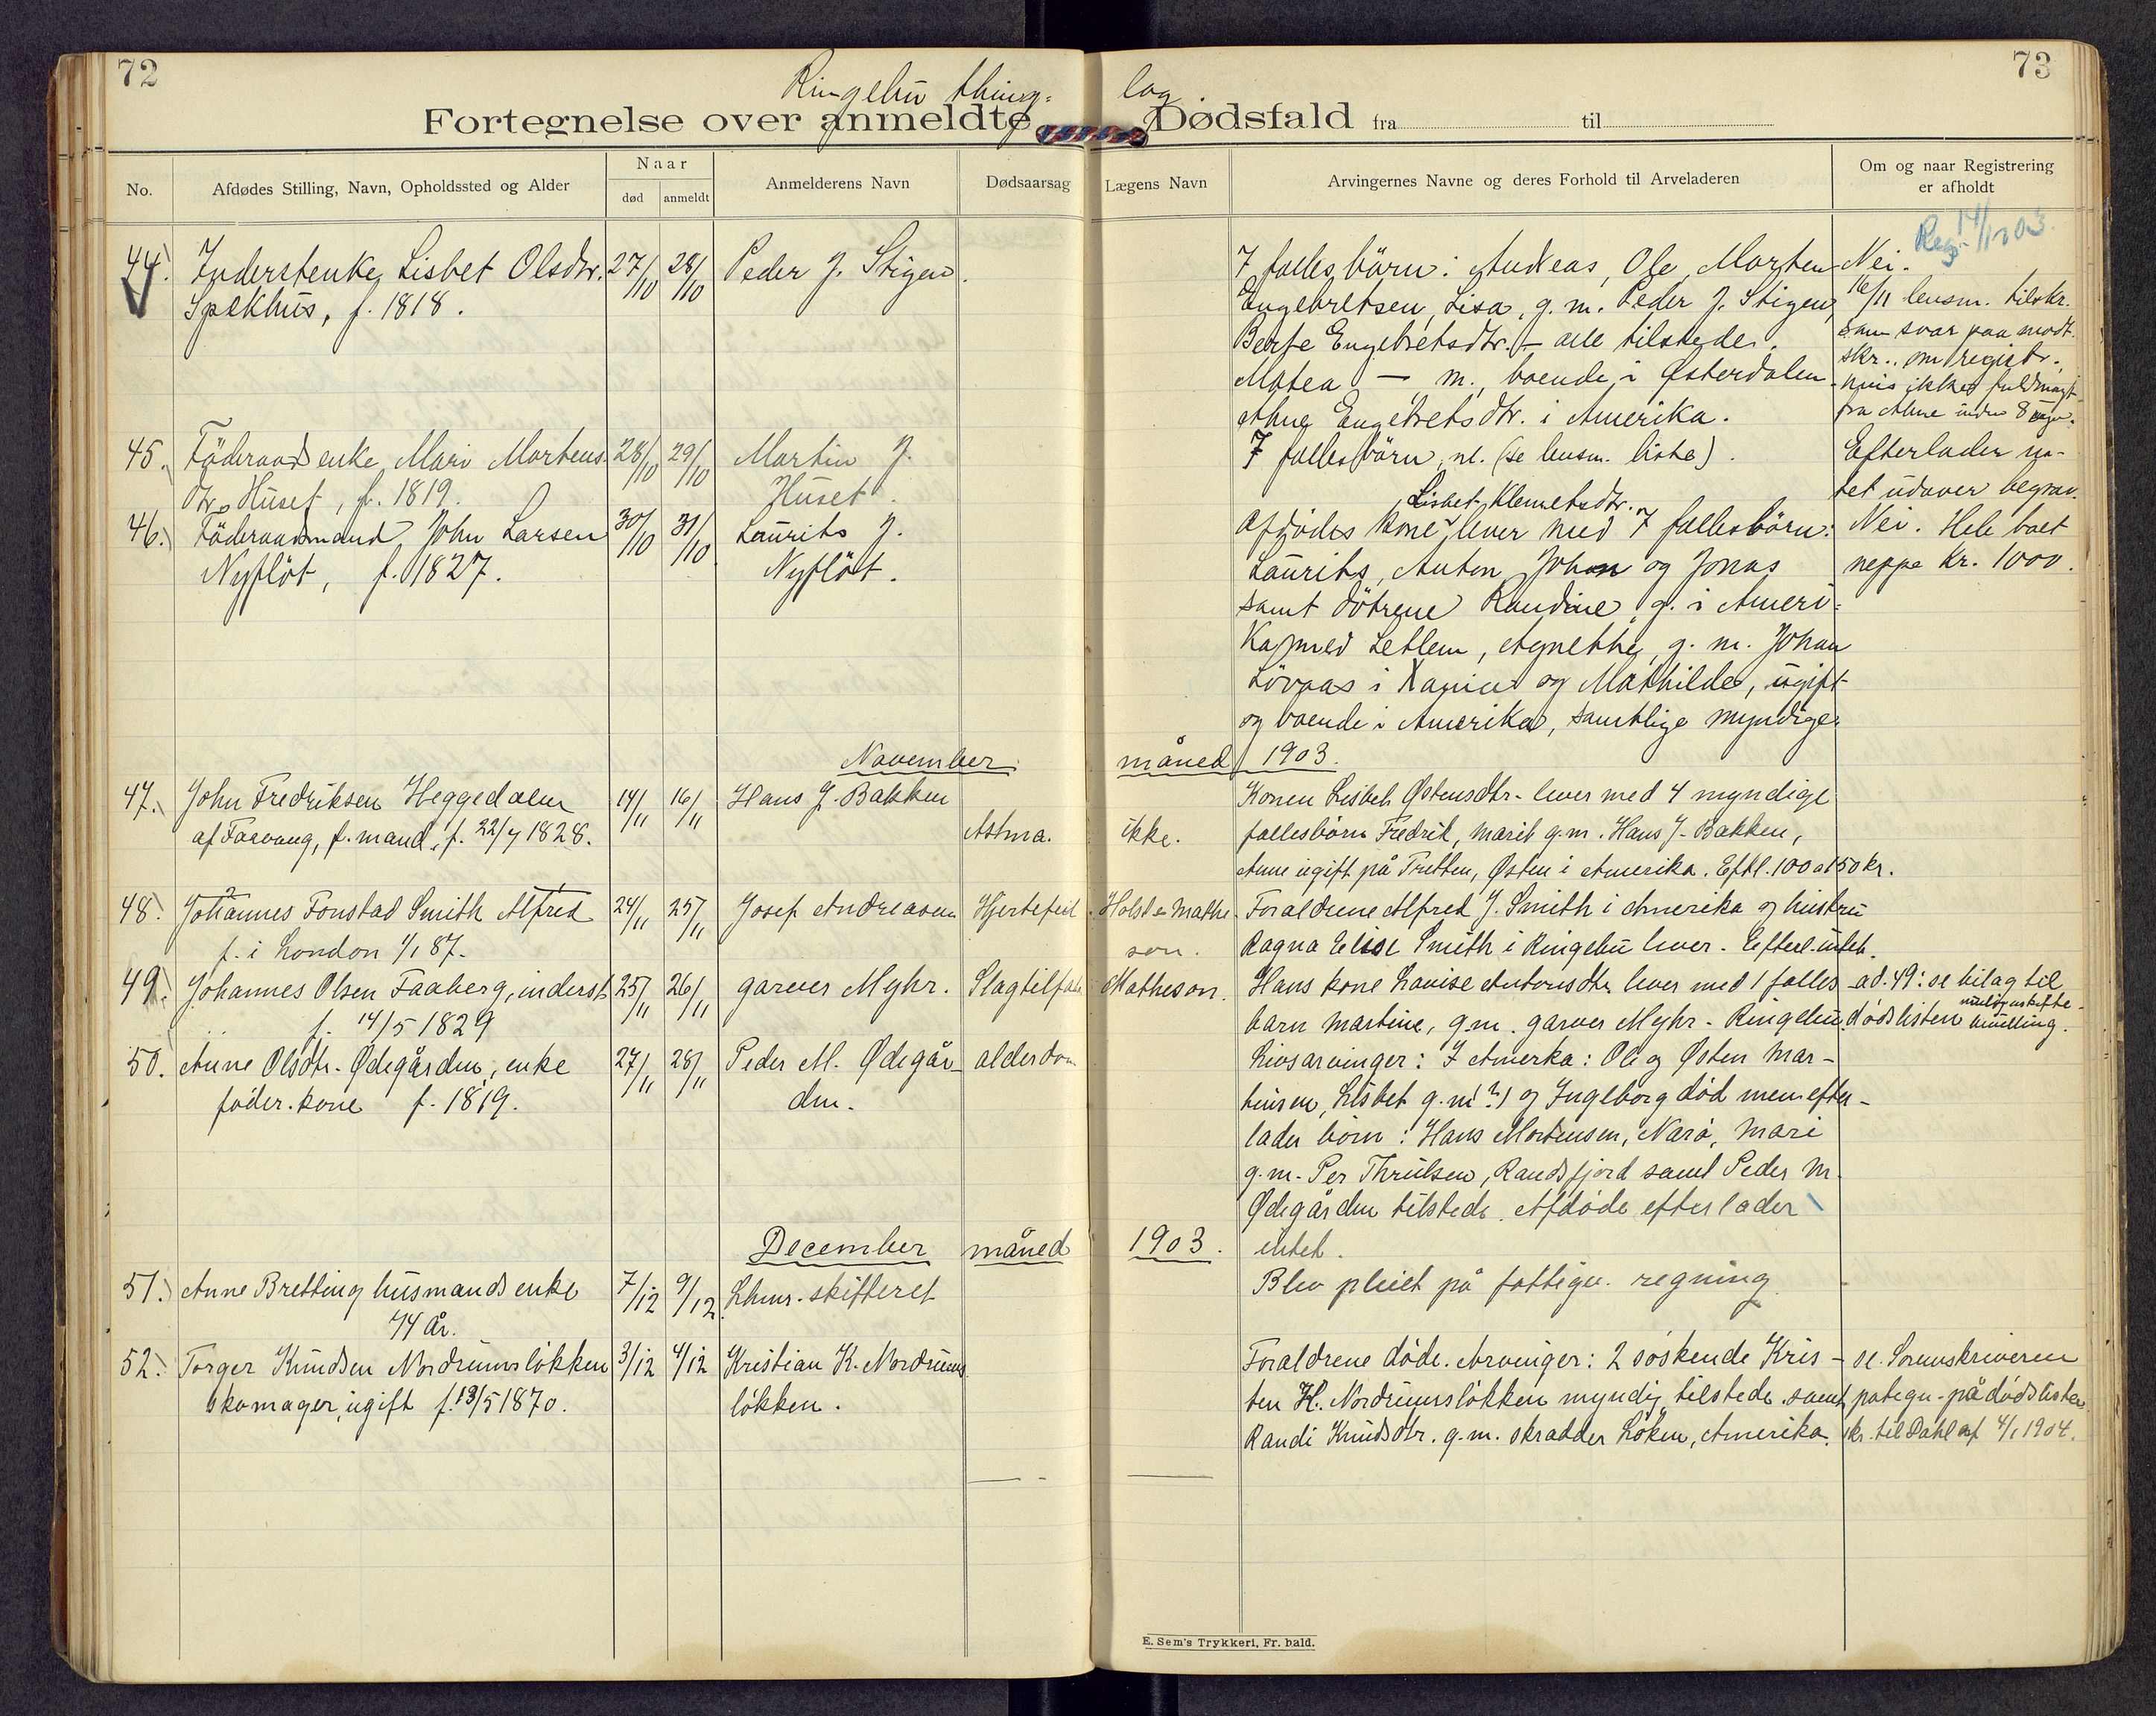 72
Ringebu thing-
lag.
73
Fortegnelse over anmeldte
Dødsfald fra til
No.
Afdødes Stilling, Navn, Opholdssted og Alder
Naar
død
anmeldt
Anmelderens Navn
Dødsaarsag
Lægens Navn
Arvingernes Navne og deres Forhold til Arveladeren
Om og naar Registrering
er afholdt
44. Inderstenke Lisbet Olsdtr. 27/10 28/10 Peder J. Stigen.
Spekhus, f. 1818.
7 fællesbörn: Andreas, Ole, Morten
Engebretsen, Lisa, g. m. Peder J. Stigen,
Berte Engebretsdtr. - alle tilstede.
Matea — m., boende i Østerdalen
Engebretsdtr. i Amerika.
Reg.
Nei.
16/11 lensm. tilskr.
svar paa modt.
skr. om registr.
hvis ikke fuldmagt
fra indre 8 dage.
45. Föderaadsenke Mari Mortens- 28/10 29/10 Martin J.
dtr. Huset, f. 1819. Huset.
7 fællesbörn, nl. (se lensm. liste).
Efterlader in-
tet udover begrav.
46. Föderaadsmand John Larsen 30/10 31/10 Laurits J.
Nyflöt, f. 1827. Nyflöt.
Lisbet Klemetsdtr.
Afdödes kone lever med 7 fællesbörn:
Laurits, Anton, Johan og Jonas
samt dötrene Randine, g. i Ameri-
ka med Letlem, Agnethe, g. m. Johan
Lövaas i og Mathilde, ugift
og boende i Amerika, samtlige myndige.
Nei. Hele boet
neppe kr. 1000.
November måned 1903.
47. John Fredriksen Heggedalen 14/11 16/11 Hans J. Bakken
af Favang, f. mand, f. 22/7 1828. Astma. ikke.
Konen Lisbet Østensdtr. lever med 4 myndige
fællesbörn Fredrik, Marit g.m. Hans J. Bakken,
Anne ugift på Tretten, Østen i Amerika. Eftl. 100 a 150 kr.
48. Johannes Fonstad Smith Alfred 24/11 25/11 Josef Andreasen Hjertefeil Holst & Mathe-
f. i London 1/1 87. son.
Forældrene Alfred J. Smith i Amerika og hustru
Ragna Elise Smith i Ringebu lever. Efterl. intet.
49. Johannes Olsen Faaberg, inderst 25/11 26/11 garver Myhr. Slagtilfælde Matheson.
f. 14/5 1829
Hans kone Lovise Antonsdtr. lever med 1 fælles-
barn Martine, g.m. garver Myhr. Ringebu.
ad. 49: se bilag til
dödslisten
50. Anne Olsdtr. Ødegården, enke 27/11 28/11 Peder M. Ødegår- alderdom
föder.kone f. 1819. den.
Livsarvinger: I Amerka: Ole og Østen Mar-
tinsen, Lisbet g.m (?) og Ingeborg död men efter-
lader börn: Hans Mortensen, Narö, Mari
g.m. Per Thrulsen, Randsfjord samt Peder M.
Ødegården tilstede. Afdöde efterlader
intet.
December måned 1903.
51. Anne Bretting husmandsenke 7/12 9/12 Lhmr. skifteret
74 År.
Blev pleiet på fattigv. regning.
52. Torger Knudsen Nordrumslökken 3/12 4/12 Kristian K. Nordrums
skomager, ugift f. 13/5 1870. lökken.
Forældrene döde. Arvinger: 2 söskende Kris-
ten K. Nordrumslökken myndig tilstede samt
Randi Knudsdtr. g.m. skrædder Löken, Amerika.
se Sorenskriveren
pategn. på dödslisten
skr. til Dahl af 4/1 1904.
E. Sem's Trykkeri, Fr. hald.